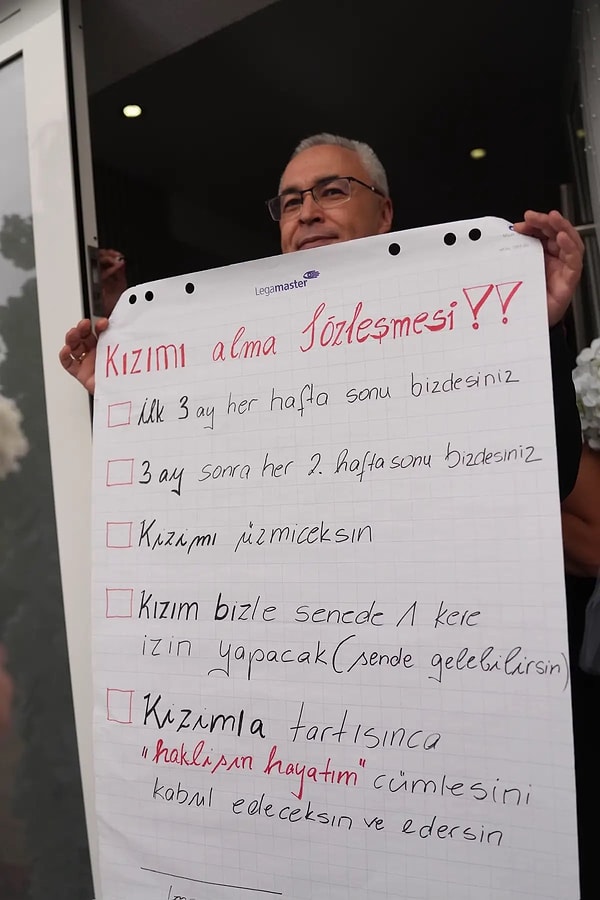 Legamaster
Kızımı alma Sözleşmesi!!
ilk 3 ay her hafta sonu bizdesiniz
3 ay sonra her 2. haftasonu bizdesiniz
Kızımı üzmiceksin
Kızım bizle senede 1 kere
izin yapacak (sende gelebilirsin)
Kızımla tartısınca
"haklısın hayatım" cümlesini
kabul edeceksin ve edersin